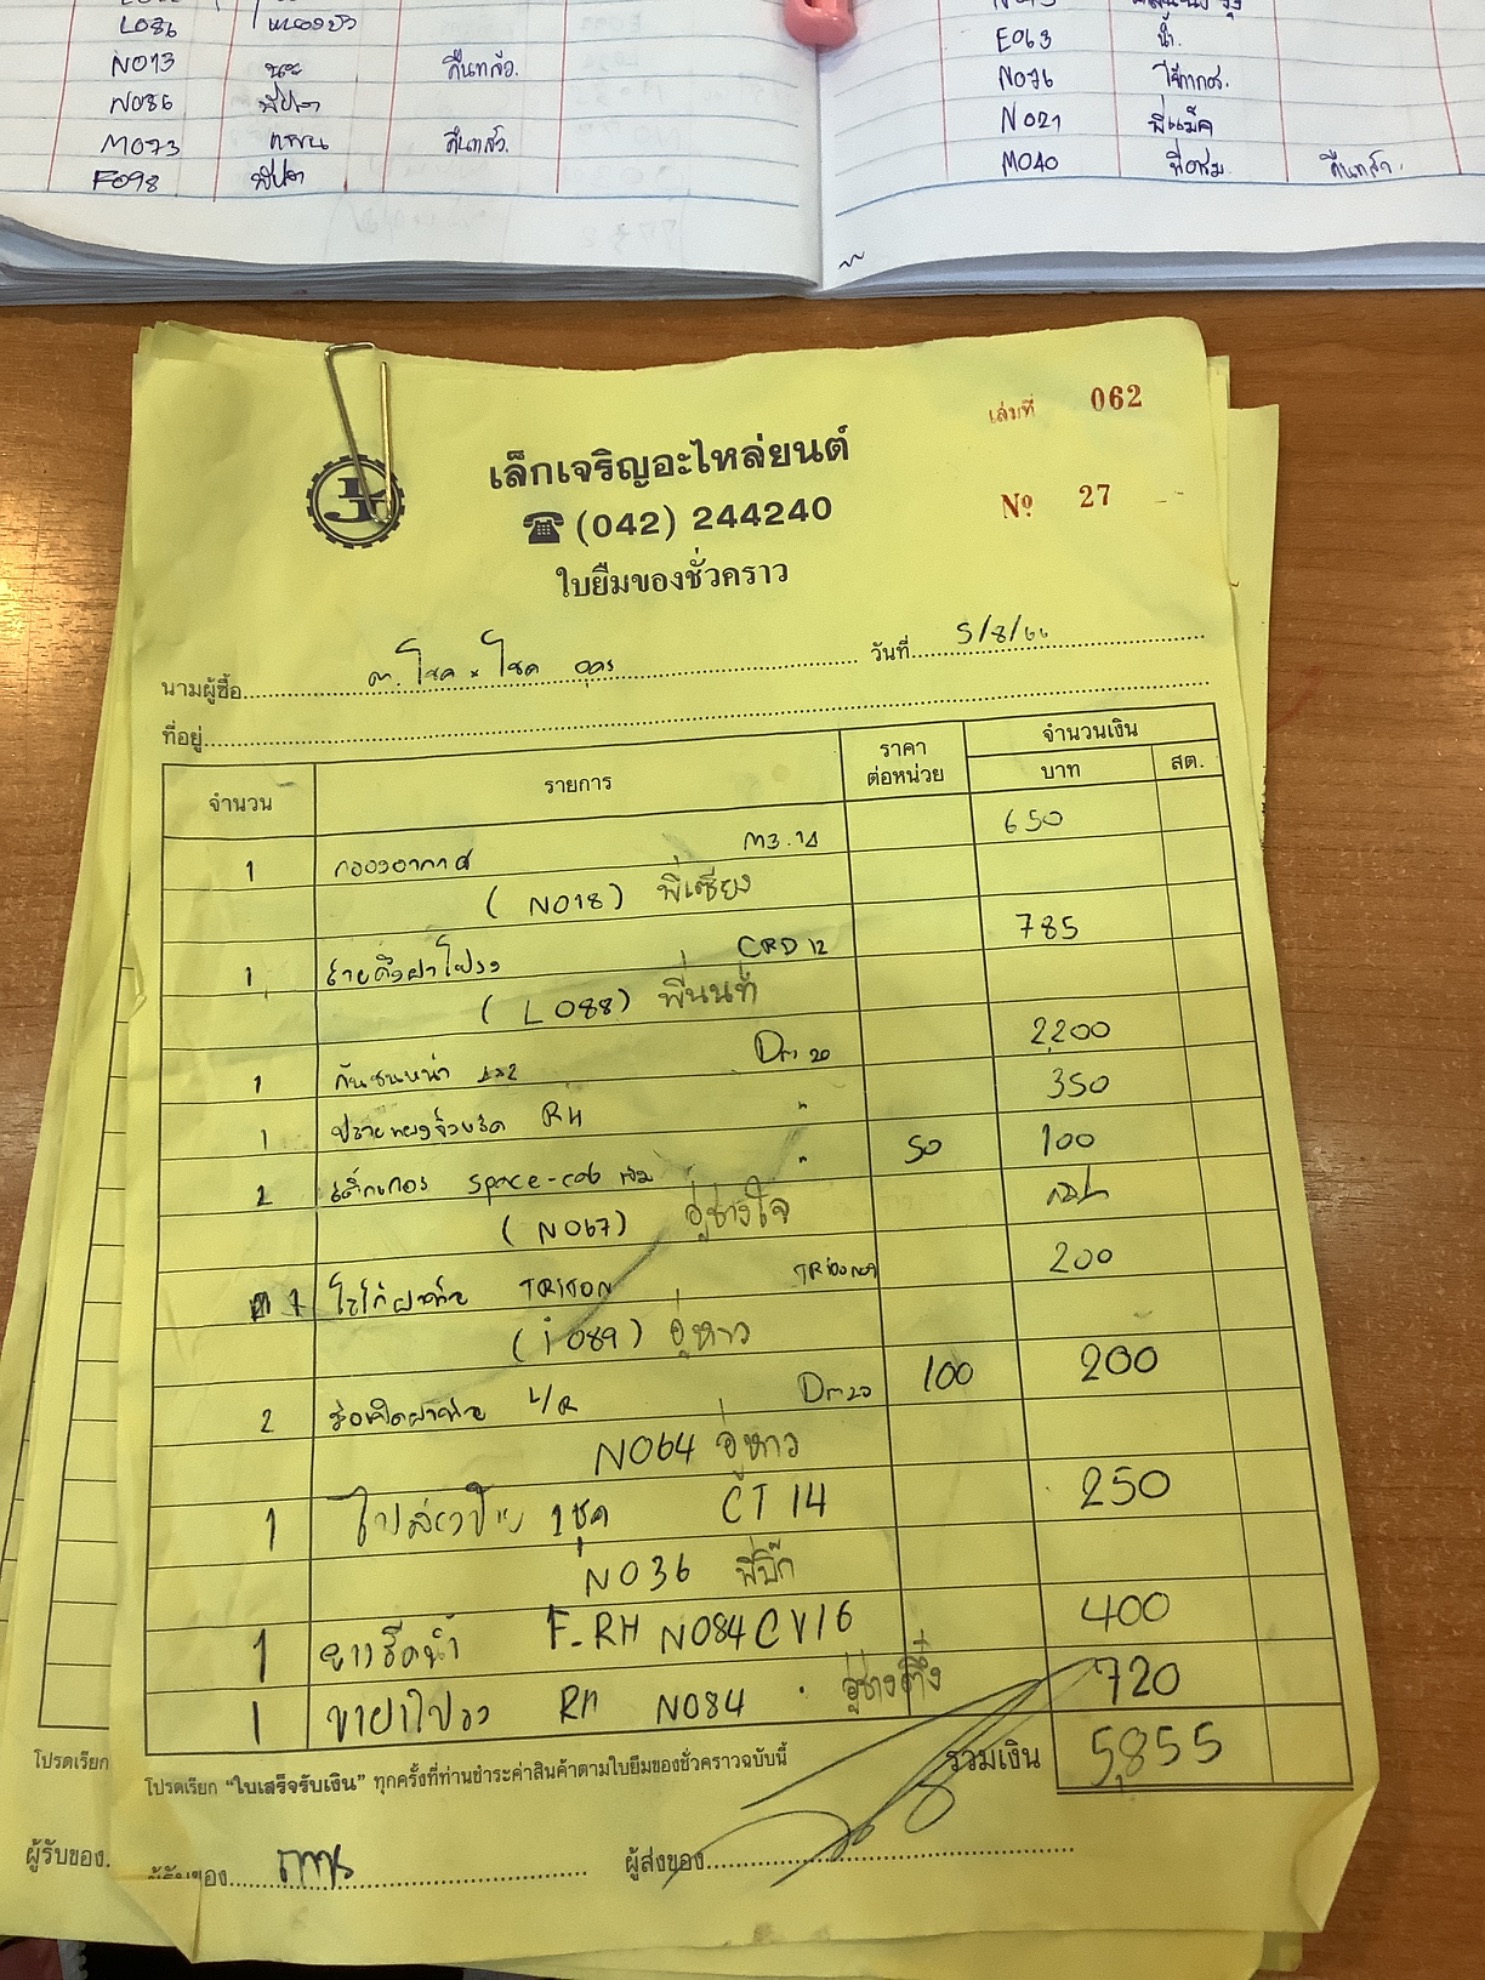 L086
N013 นะ คืนแล้ว.
N086
M073 แพน คืนแล้ว.
F098
E063 น้ำ.
N076
N021 พี่แม็ค
M040 คืนแล้ว.
เล่มที่ 062
เล็กเจริญอะไหล่ยนต์
Nº 27
☎ (042) 244240
ใบยืมของชั่วคราว
นามผู้ซื้อ ต. โชค x โชค อุดร วันที่ 5/8/66
ที่อยู่
จำนวน รายการ ราคาต่อหน่วย จำนวนเงิน
บาท สต.
1 กองอากาศ 650
(N018) พี่เซียง
1 สายดึงฝาโปรง CRD 12 785
(L088) พี่นนท์
1 กันชนหน้า Dm 20 2,200
1 RH " 350
2 สติ๊กเกอร์ space-cab " 50 100
(N067) อู่ช่างใจ
1 TRITON 200
(i089) อู่หาว
2 มือเปิดฝาท้าย L/R Dm20 100 200
N064 อู่หาว
1 1 ชุด CT 14 250
N036 พี่บิ๊ก
1 ยางรีดน้ำ F-RH N084 CV16 400
1 ขาฝาโปรง RH N084 อู่ช่างตึ๋ง 720
โปรดเรียก "ใบเสร็จรับเงิน" ทุกครั้งที่ท่านชำระค่าสินค้าตามใบยืมของชั่วคราวฉบับนี้ รวมเงิน 5,855
โปรดเรียก
ผู้รับของ ผู้ส่งของ
ผู้รับของ